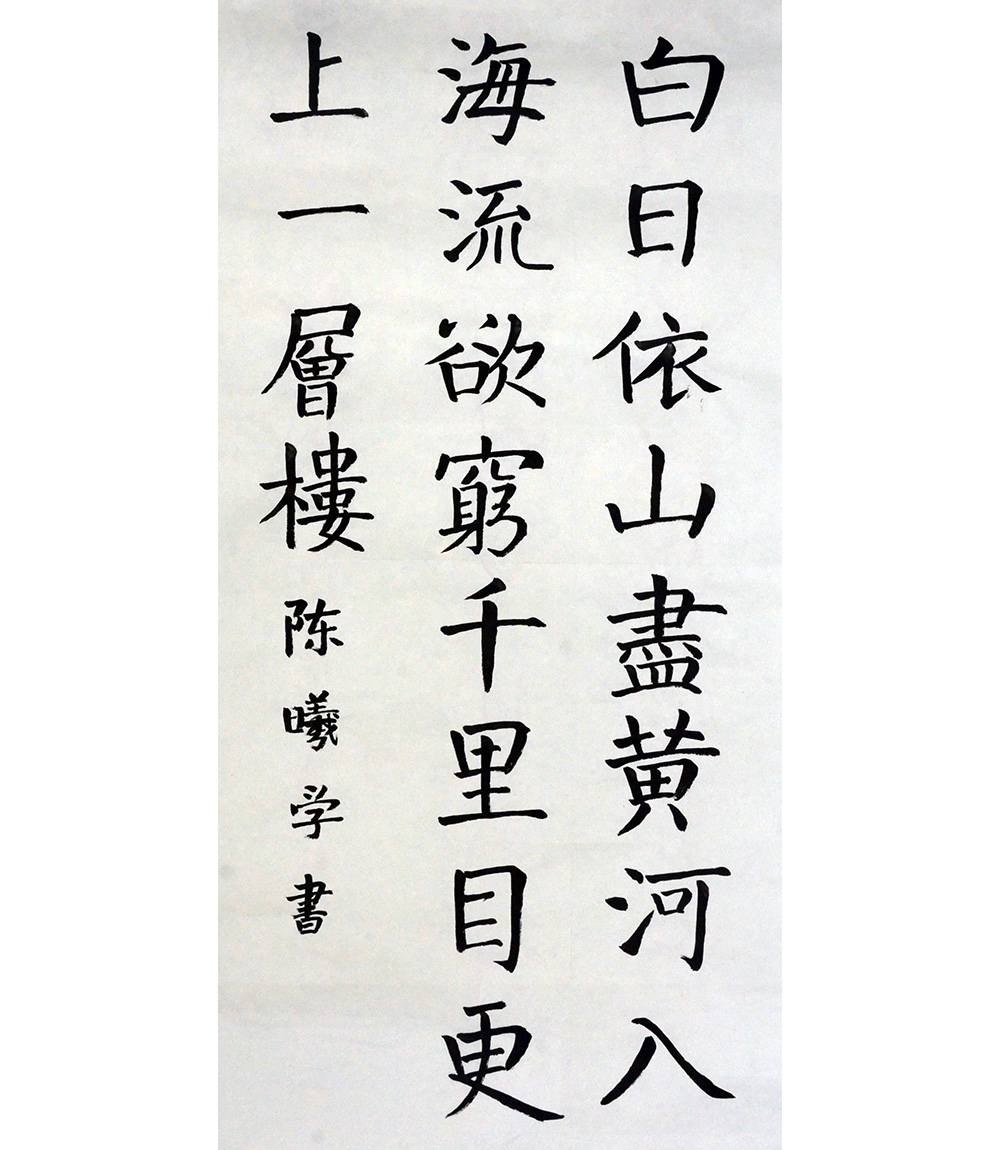 白日依山盡黄河入
海流欲窮千里目更
上一層樓 陈曦学書